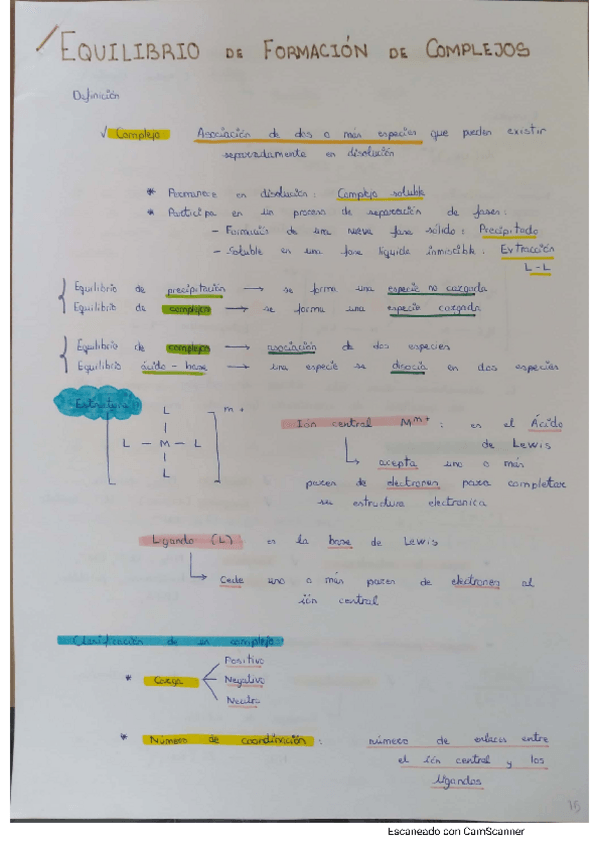 EQUILIBRIO DE FORMACIÓN DE COMPLEJOS
Definición
✓ Complejo Asociación de dos o más especies que pueden existir
separadamente en disolución
* Permanece en disolución: Complejo soluble
* Participa en un proceso de separación de fases:
- Formación de una nueva fase sólido: Precipitado
- Soluble en una fase líquida inmiscible. Extracción
L-L
Equilibrio de precipitación → se forma una especie no cargada
Equilibrio de complejos → se forma una especie cargada
Equilibrio de complejos → asociación de dos especies
Equilibrio ácido-base → una especie se disocia en dos especies
Estructura
L m+
L — M — L
L
Ión central M^m+ : es el Ácido
de Lewis
acepta uno o más
pares de electrones para completar
su estructura electronica
Ligando (L) es la base de Lewis
Cede uno o más pares de electrones al
ión central
Clasificación de un complejo
Positivo
* Carga Negativo
Neutro
* Número de coordinación: número de enlaces entre
el ión central y los
ligandos
15
Escaneado con CamScanner